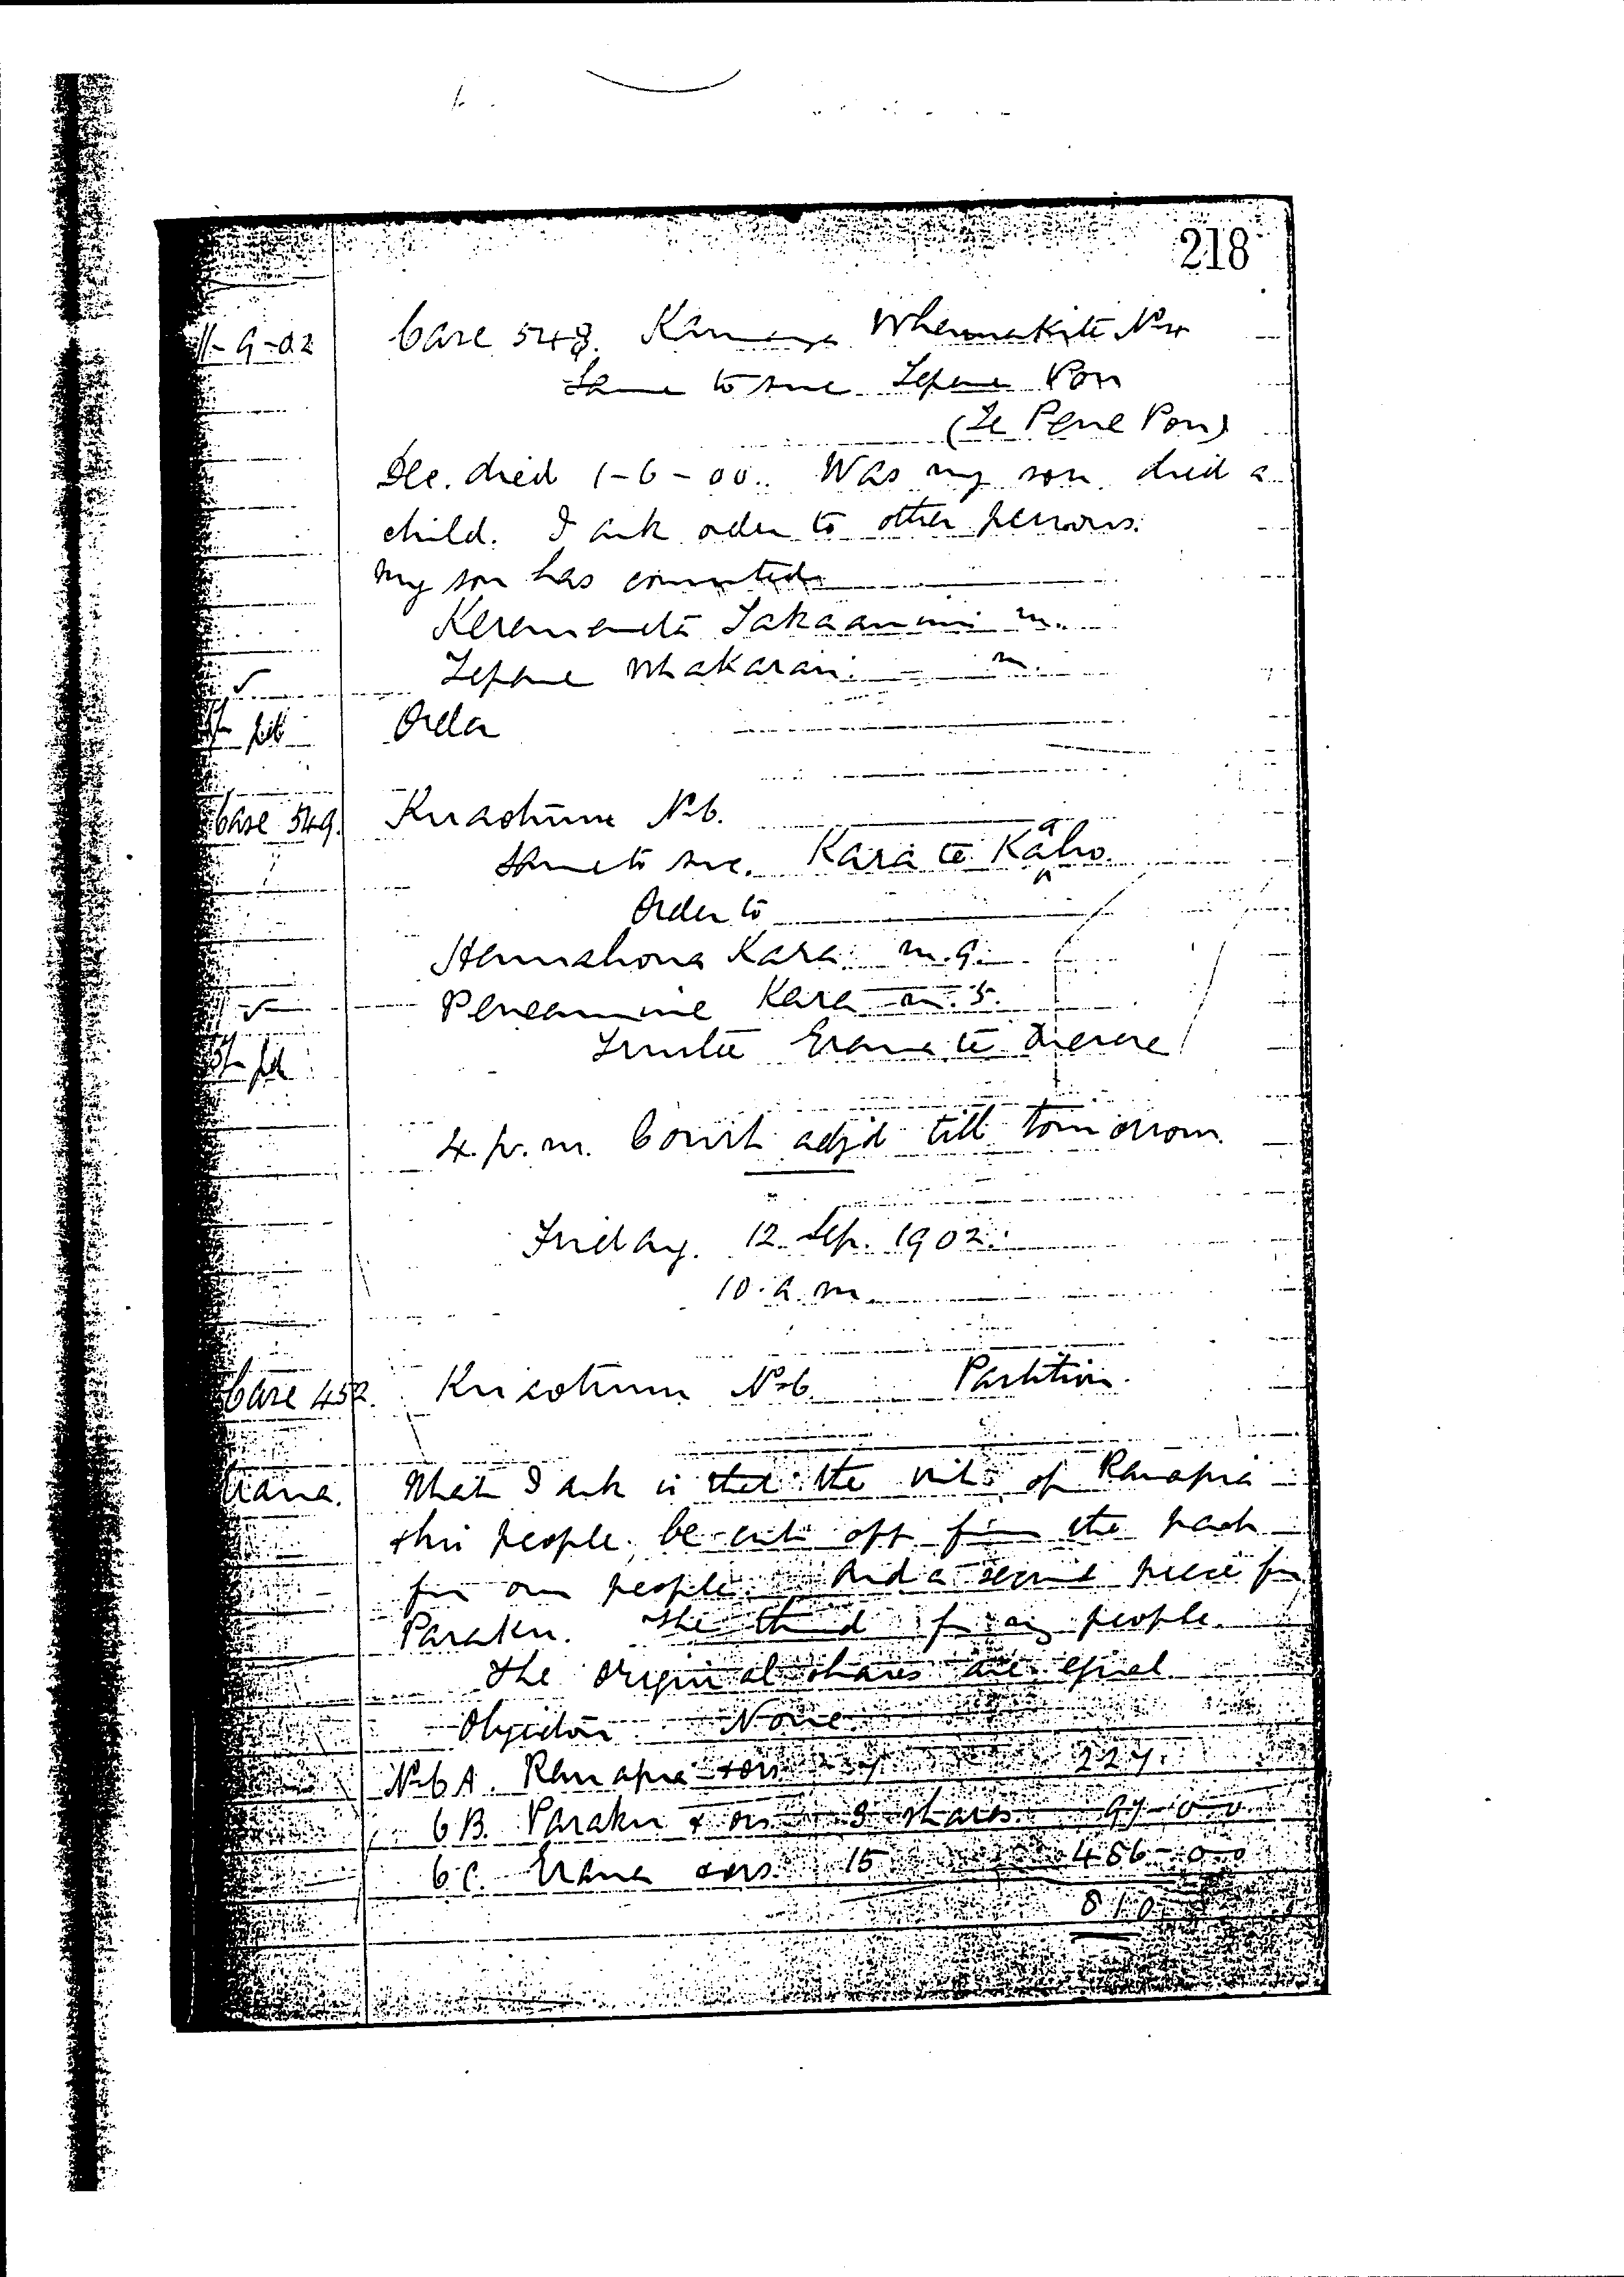 218
11-9-02 Case 548. Whenuakite No 4
Same to suc. Tepene Pou
(Te Pene Pou)
Dec. died 1-6-00. Was my son. died a
child. I ask order to other persons.
My son has consented
Keremeneta Takaanini m.
Tepene Whakarari m.
Order
Case 549. Kuaotunu No 6.
Same to suc. Kara te Kaho
Order to
Kara m. 9.
Peneamine Kara m. 5.
Trustee Erana te
4. p. m. Court adjd till tomorrow.
Friday. 12 Sep. 1902.
10. a. m.
Case 452. Kuaotunu No 6 Partition.
Erana. What I ask is that the of Ranapia
people, be cut off from the
for our people. And a second piece for
Paraku. The third for my people.
The original shares are equal
Objection None
No 6A. Ranapia & ors 7 227.
6B. Paraku & ors 3 shares 97-0-0
6C. Erana & ors. 15 486-0-0
810